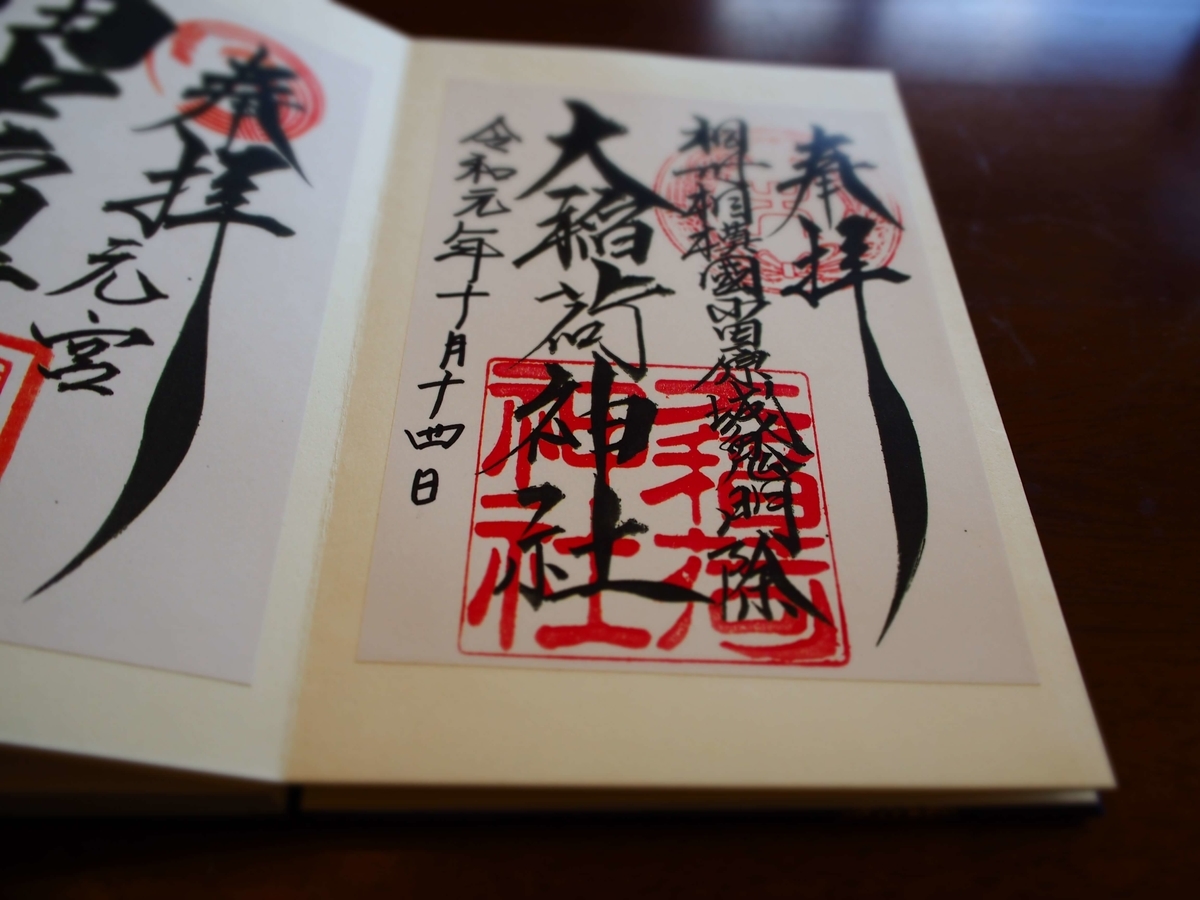 奉拝
相州相模國小田原城鬼門除
大稲荷神社
令和元年十月十四日
奉拝
元宮